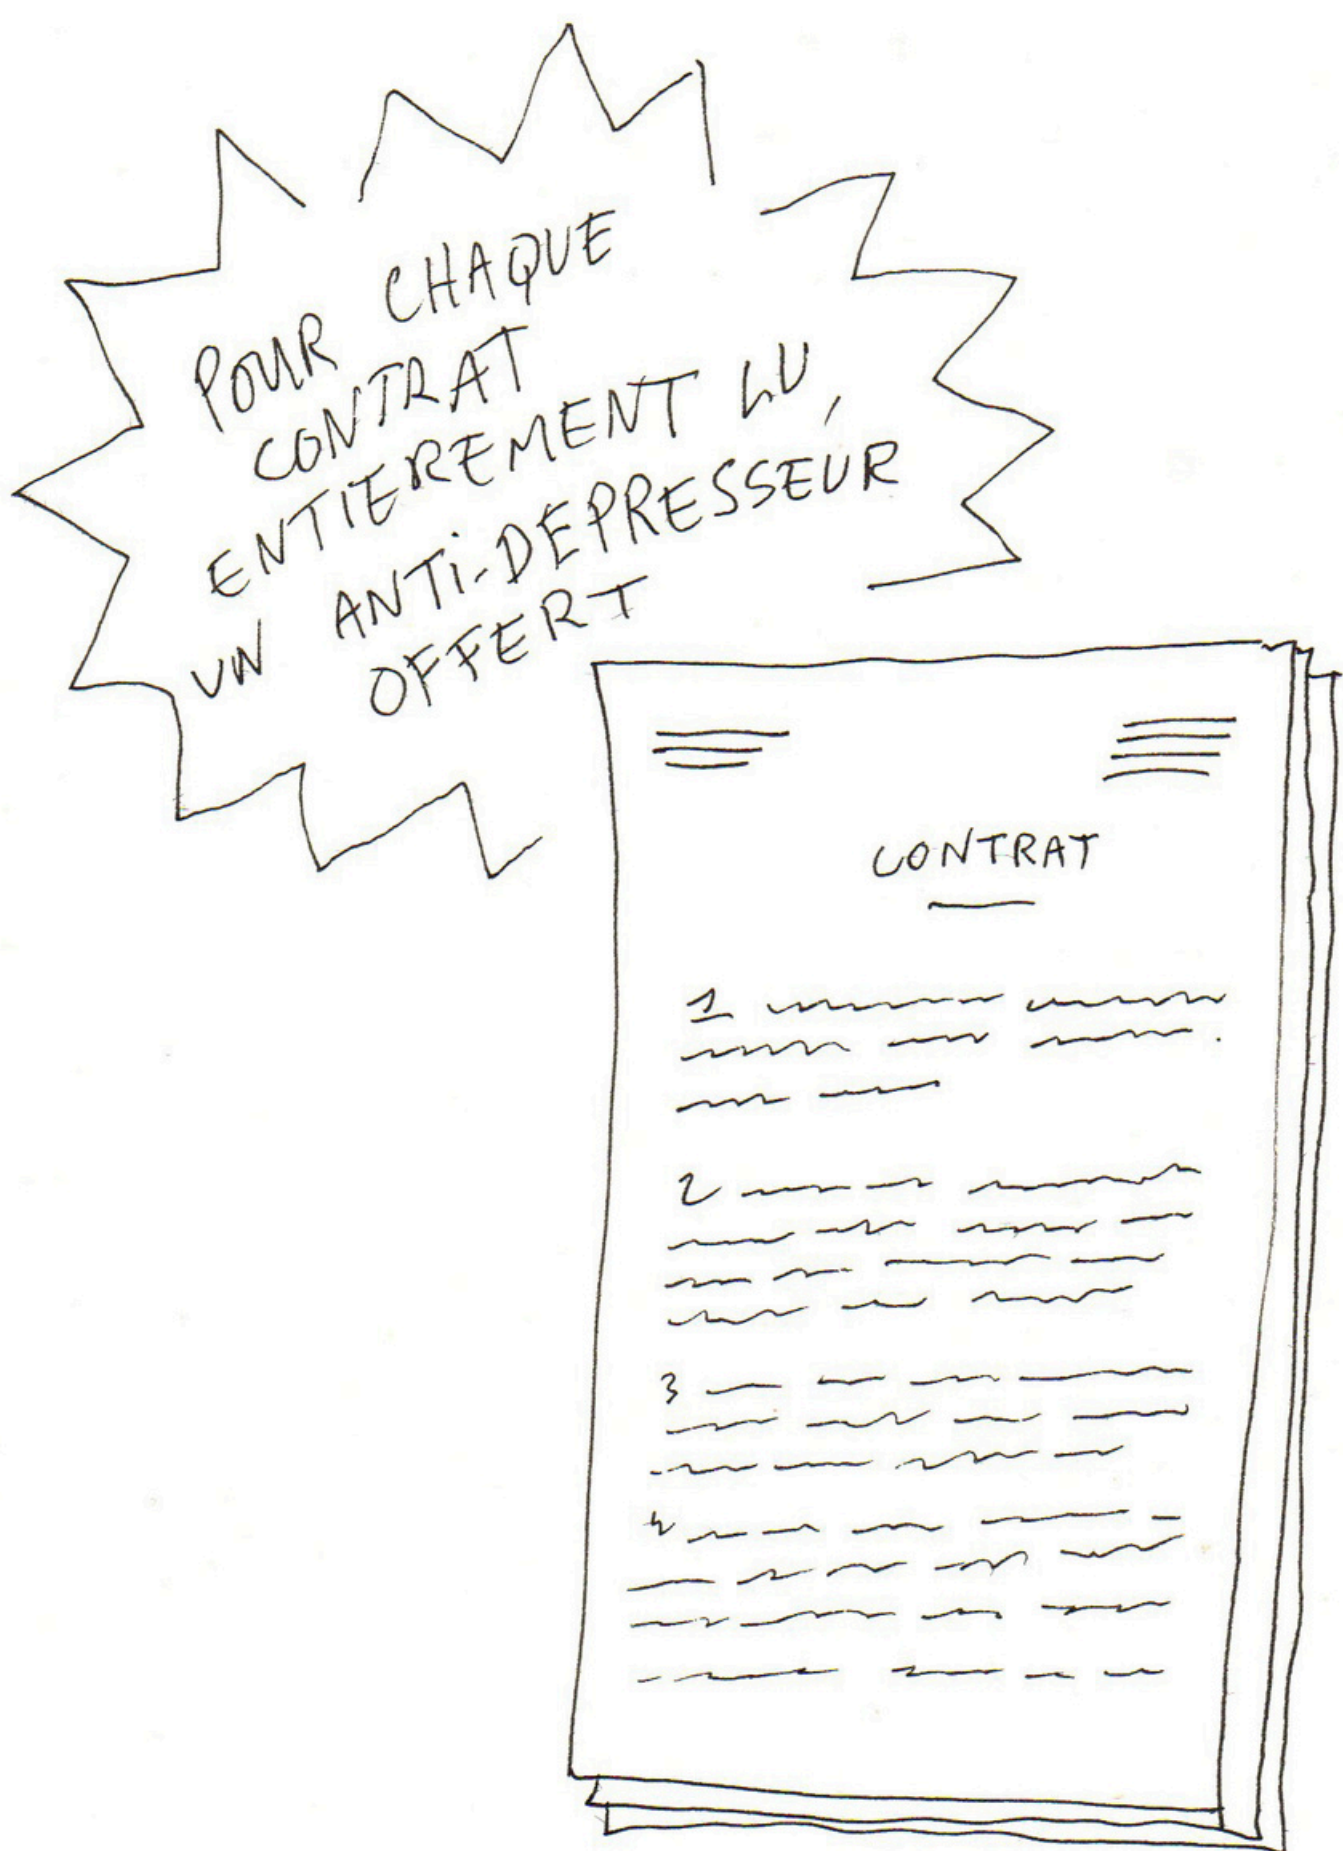 POUR CHAQUE
CONTRAT
ENTIEREMENT LU,
UN ANTI-DEPRESSEUR
OFFERT
CONTRAT
1
2
3
4